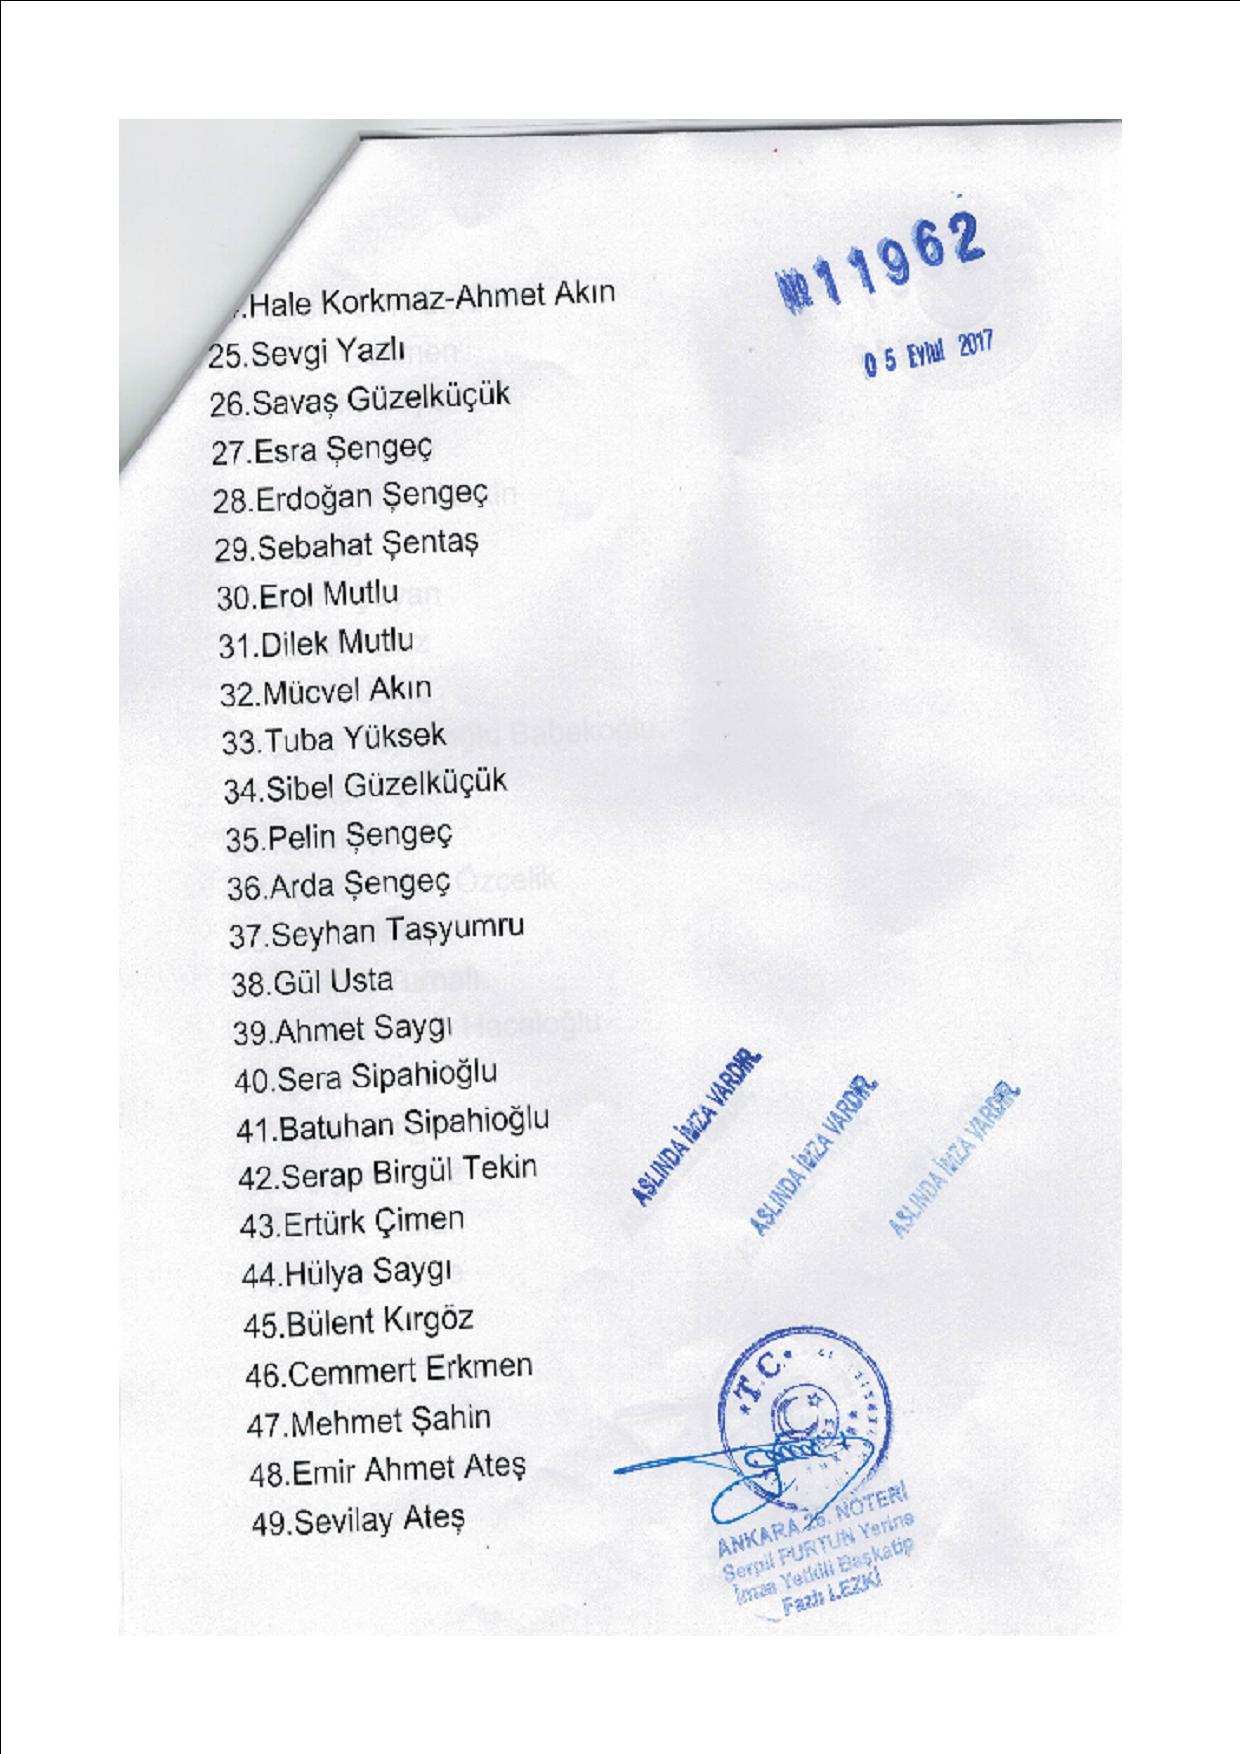 № 11962
05 Eylül 2017
.Hale Korkmaz-Ahmet Akın
25.Sevgi Yazlı
26.Savaş Güzelküçük
27.Esra Şengeç
28.Erdoğan Şengeç
29.Sebahat Şentaş
30.Erol Mutlu
31.Dilek Mutlu
32.Mücvel Akın
33.Tuba Yüksek
34.Sibel Güzelküçük
35.Pelin Şengeç
36.Arda Şengeç
37.Seyhan Taşyumru
38.Gül Usta
39.Ahmet Saygı
40.Sera Sipahioğlu
41.Batuhan Sipahioğlu
42.Serap Birgül Tekin
43.Ertürk Çimen
44.Hülya Saygı
45.Bülent Kırgöz
46.Cemmert Erkmen
47.Mehmet Şahin
48.Emir Ahmet Ateş
49.Sevilay Ateş
ASLINDA İMZA VARDIR.
ASLINDA İMZA VARDIR.
ASLINDA İMZA VARDIR.
T.C.
ANKARA 26. NOTERİ
Serpil PURTUN Yerine
İmza Yetkili Başkatip
Fazlı LEZKİ